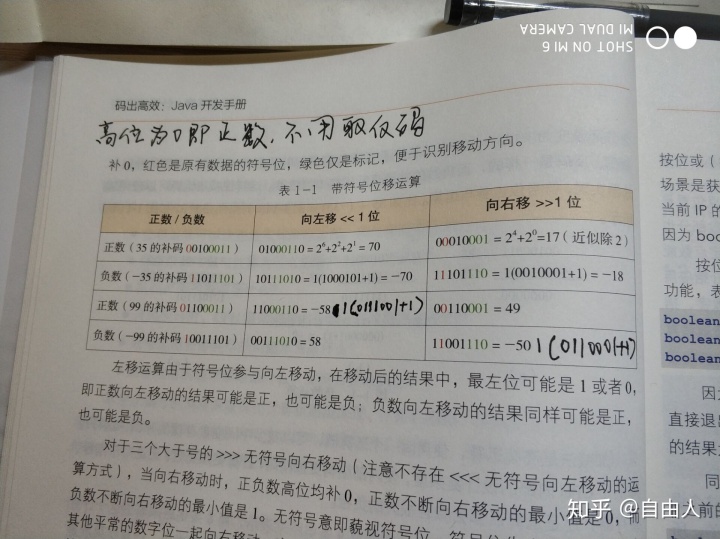 SHOT ON MI 6
MI DUAL CAMERA
码出高效：Java 开发手册
高位为0即正数，不用取反码
补 0，红色是原有数据的符号位，绿色仅是标记，便于识别移动方向。
表 1-1 带符号位移运算
正数 / 负数 向左移 << 1 位 向右移 >>1 位
正数（35 的补码 00100011） 01000110 = 2^6+2^2+2^1 = 70 00010001 = 2^4+2^0=17（近似除 2）
负数（-35 的补码 11011101） 10111010 = 1(1000101+1) = -70 11101110 = 1(0010001+1) = -18
正数（99 的补码 01100011） 11000110 = -58 1(0111001+1) 00110001 = 49
负数（-99 的补码 10011101） 00111010 = 58 11001110 = -50 1(0110001+1)
左移运算由于符号位参与向左移动，在移动后的结果中，最左位可能是 1 或者 0，
即正数向左移动的结果可能是正，也可能是负；负数向左移动的结果同样可能是正，
也可能是负。
对于三个大于号的 >>> 无符号向右移动（注意不存在 <<< 无符号向左移动的运
算方式），当向右移动时，正负数高位均补 0，正数不断向右移动的最小值是 0，而
负数不断向右移动的最小值是 1。无符号意即藐视符号位，符号位
其他平常的数字位一起向右移动
按位或（
场景是获
当前 IP 的
因为 boo
按位
功能，表
boolean
boolean
boolean
因
直接退出
的结果
同
前的
知乎 @自由人